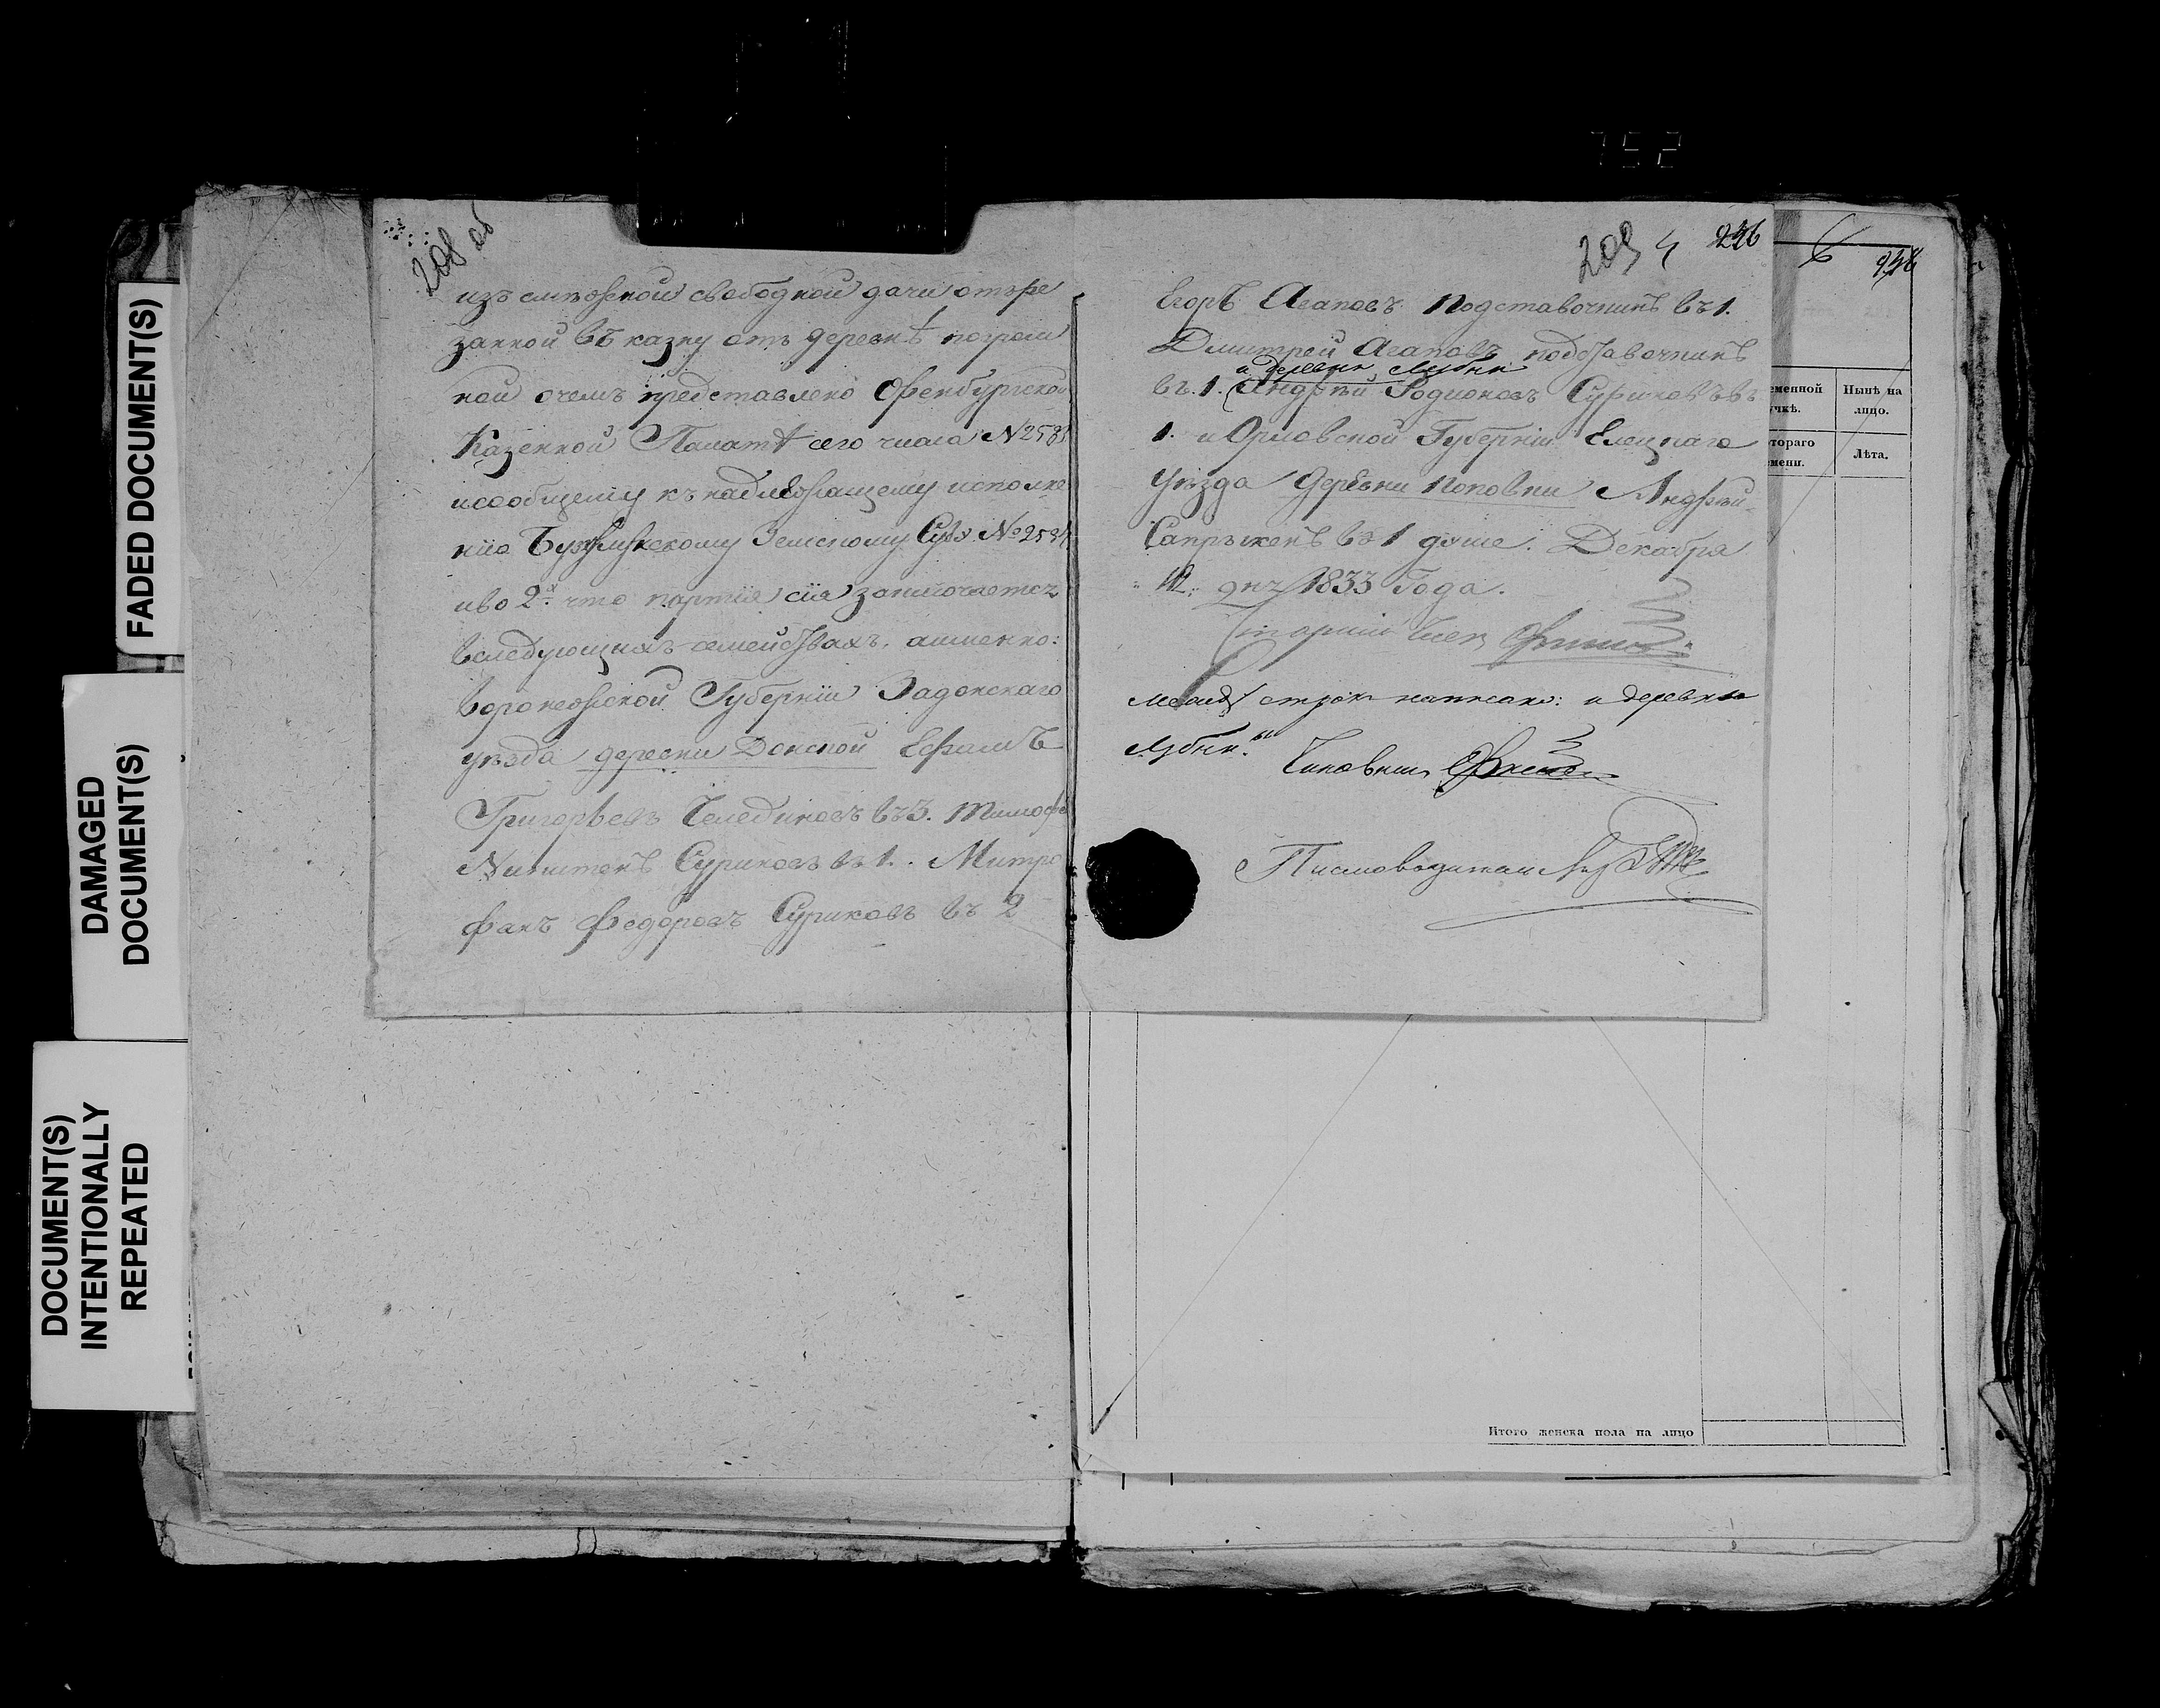 752
FADED DOCUMENT(S)
DAMAGED
DOCUMENT(S)
DOCUMENT(S)
INTENTIONALLY
REPEATED
208 об
изъ смѣжной свободной дачи отърѣ
занной въ казну отъ деревнѣ погром
ной очемъ представлено Оренбургской
Казенной Палатѣ сего числа №
исообщему къ надлежащему исполне
нію Земскому Суду №
иво 2й что партія сія заключается
вслѣдующихъ семействахъ, аименно:
Воронежской Губерніи Задонскаго
уѣзда деревни Донской Ефимъ
Григорьевъ въ 3. Тимофѣ
Никитинъ Суриковъ въ 1. Митро
фанъ Федоровъ Суриковъ въ 2
209 4 246
Егоръ Агаповъ Подставочникъ въ 1.
Дмитрей Агаповъ подставочникъ
и деревни
въ 1. Андрѣй Родионовъ Суриковъ въ
1. и Орловской Губерніи Елецкаго
уѣзда деревни Поповки Андрѣй
Сапрыкенъ въ 1 душе. Декабря
дня 1833 Года.
строкъ написано: и деревни
Писмоводитель
6
еменной
учкѣ.
Нынѣ на
лицо.
тораго
емени.
Лѣта.
Итого женска пола на лицо